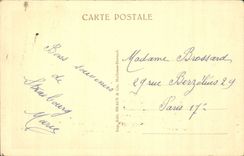 CARTE POSTALE
Bons souvenirs
de
Strasbourg
Marie
Madame Brossard
29 rue Berzélius 29
Paris 17e